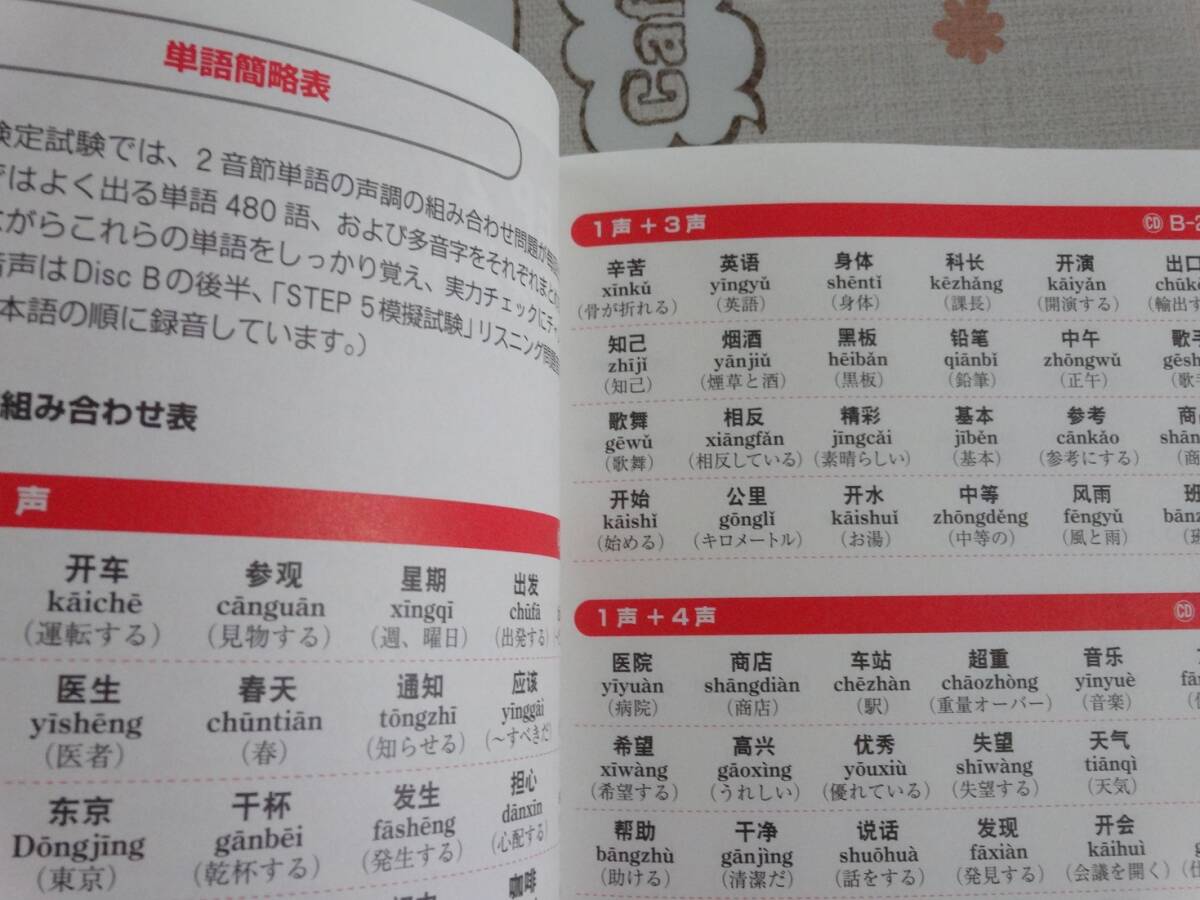 単語簡略表
検定試験では、2音節単語の声調の組み合わせ問題が
ではよく出る単語480語、および多音字をそれぞれまとめ
ながらこれらの単語をしっかり覚え、実力チェックにチャ
音声はDisc Bの後半、「STEP 5模擬試験」リスニング問題
本語の順に録音しています。）
組み合わせ表
声
开车 参观 星期 出发
kāichē cānguān xīngqī chūfā
（運転する） （見物する） （週、曜日） （出発する）
医生 春天 通知 应该
yīshēng chūntiān tōngzhī yīnggāi
（医者） （春） （知らせる） （〜すべきだ）
东京 干杯 发生 担心
Dōngjīng gānbēi fāshēng dānxīn
（東京） （乾杯する） （発生する） （心配する）
咖啡
Caf
1声＋3声 CD B-2
辛苦 英语 身体 科长 开演 出口
xīnkǔ yīngyǔ shēntǐ kēzhǎng kāiyǎn chūk
（骨が折れる） （英語） （身体） （課長） （開演する） （輸出す
知己 烟酒 黑板 铅笔 中午 歌手
zhījǐ yānjiǔ hēibǎn qiānbǐ zhōngwǔ gēsh
（知己） （煙草と酒） （黒板） （鉛筆） （正午） （歌手
歌舞 相反 精彩 基本 参考 商
gēwǔ xiāngfǎn jīngcǎi jīběn cānkǎo shān
（歌舞） （相反している） （素晴らしい） （基本） （参考にする） （商
开始 公里 开水 中等 风雨 班
kāishǐ gōnglǐ kāishuǐ zhōngděng fēngyǔ bānz
（始める） （キロメートル） （お湯） （中等の） （風と雨） （班
1声＋4声 CD
医院 商店 车站 超重 音乐
yīyuàn shāngdiàn chēzhàn chāozhòng yīnyuè fān
（病院） （商店） （駅） （重量オーバー） （音楽）
希望 高兴 优秀 失望 天气
xīwàng gāoxìng yōuxiù shīwàng tiānqì
（希望する） （うれしい） （優れている） （失望する） （天気）
帮助 干净 说话 发现 开会
bāngzhù gānjìng shuōhuà fāxiàn kāihuì g
（助ける） （清潔だ） （話をする） （発見する） （会議を開く） （仕